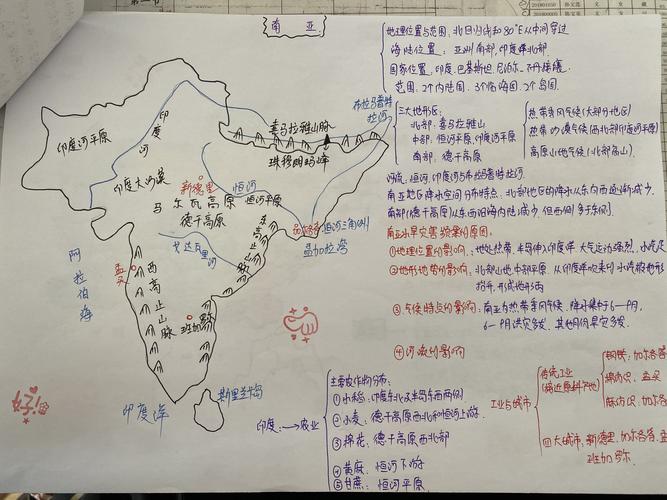 南亚
印度河平原
印度河
喜马拉雅山脉
珠穆朗玛峰
布拉马普特拉河
印度大沙漠
新德里
恒河
恒河平原
马尔瓦高原
德干高原
加尔各答
恒河三角州
孟加拉湾
戈达瓦里河
东高止山脉
阿拉伯海
孟买
西高止山脉
班加罗尔
斯里兰卡岛
印度洋
好!
地理位置与范围:北回归线和80°E从中间穿过
海陆位置:亚洲南部,印度洋北部
国家位置,印度,巴基斯坦,尼泊尔、不丹
范围,2个内陆国,3个临海国,2个岛国.
三大地形区:
北部:喜马拉雅山
中部:恒河平原,印度河平原
南部:德干高原
热带季风气候(大部分地区)
热带沙漠气候(西北部印度河平原)
高原山地气候(北部高山).
河流,恒河,印度河,布拉马普特拉河.
南亚地区降水空间分布特点:北部地区的降水从东向西逐渐减少,
南部(德干高原)从东西沿海向内陆减少,但西侧多于东侧.
南亚水旱灾害频繁的原因,
①地理位置的影响,:地处热带,半岛伸入印度洋,大气运动强烈,
②地形地势的影响:北部山地,中部平原,从印度洋吹来的
抬升,形成地形雨
③气候特点的影响:南亚为热带季风气候,降水集中于6一9月,
6一9月洪灾多发,其他月份旱灾多发.
④河流的影响
印度:→农业
主要农作物分布:
①水稻:印度东北及半岛东西两侧
②小麦:德干高原西北和恒河上游.
③棉花:德干高原西北部
④黄麻,恒河下游
⑤甘蔗:恒河平原
工业与城市
传统工业
(接近原料产地)
钢铁,加尔各答
棉纺织,孟买
麻纺织,加尔各
四大城市,新德里,加尔各答,孟
班加罗尔.